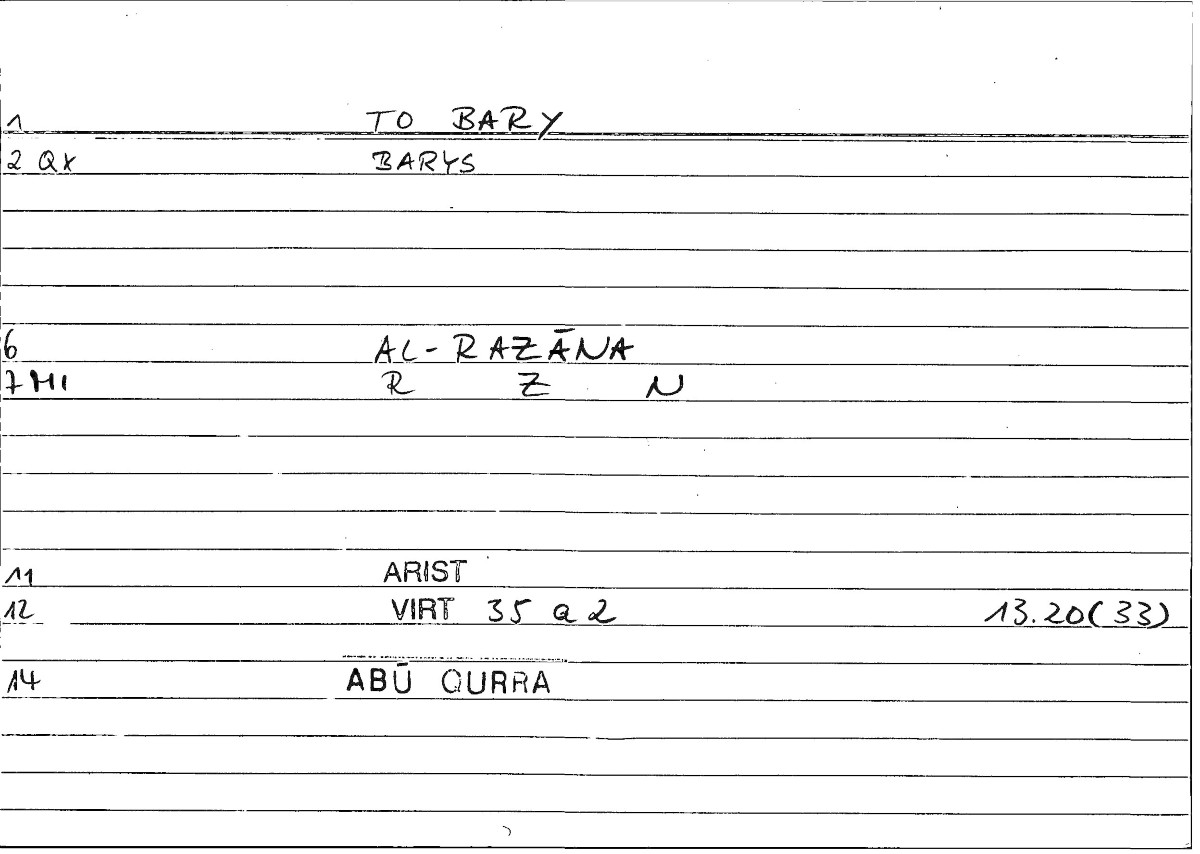 1 TO BARY
2 QX BARYS
6 AL-RAZĀNA
7 MI R Z N
11 ARIST
12 VIRT 35 a 2 13.20(33)
14 ABŪ QURRA